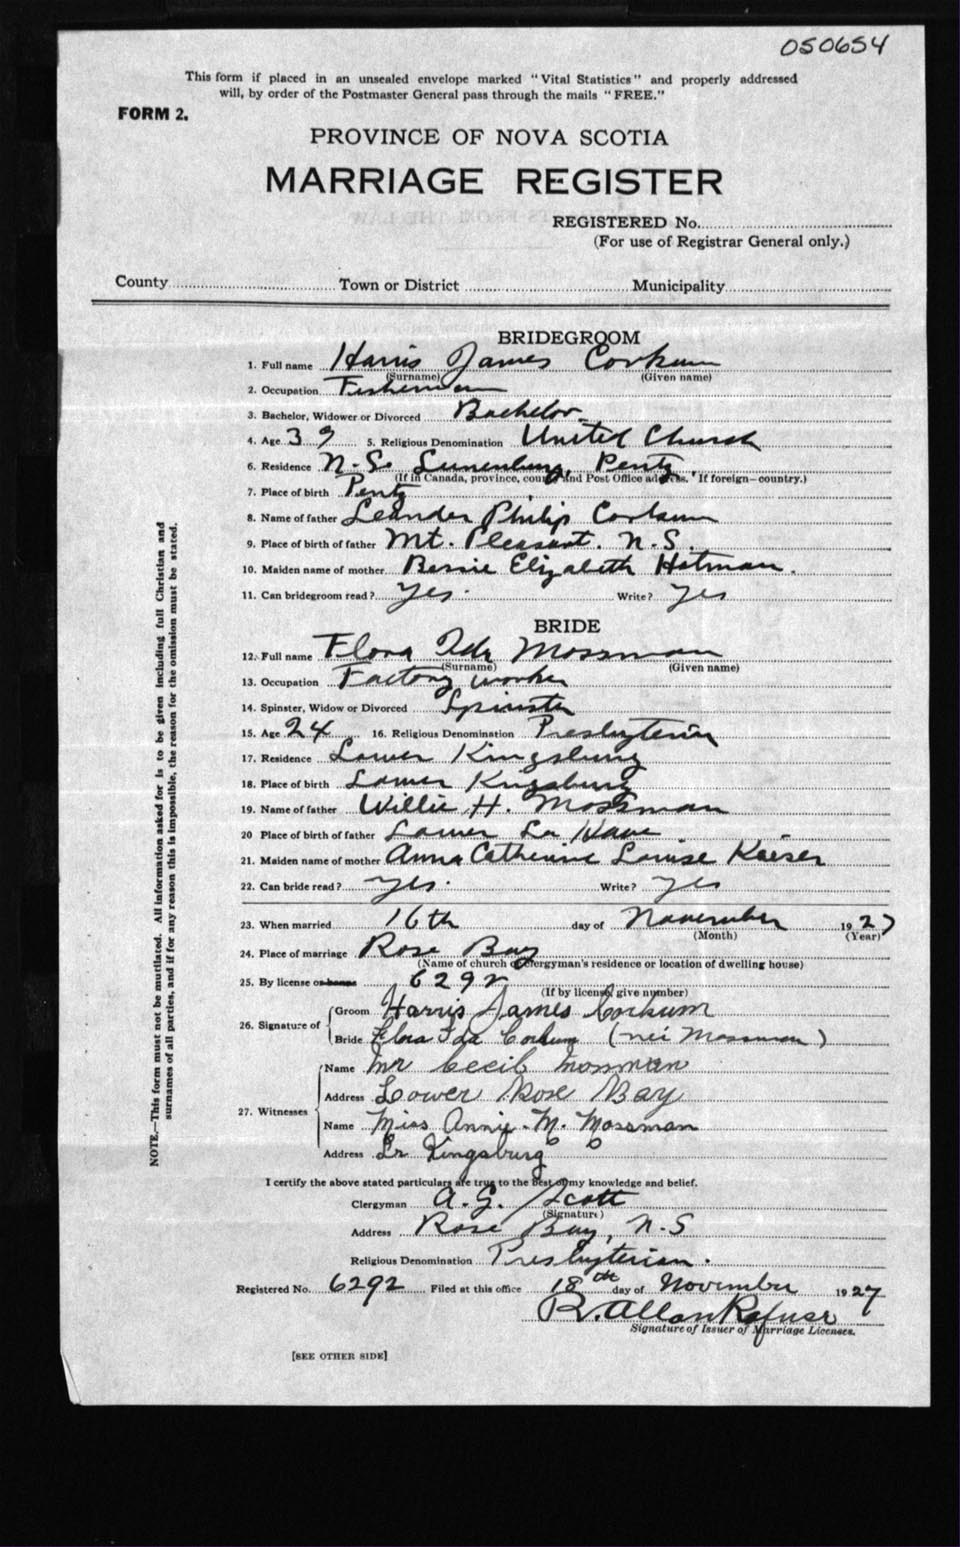 050654
This form if placed in an unsealed envelope marked "Vital Statistics" and properly addressed
will, by order of the Postmaster General pass through the mails "FREE."
FORM 2.
PROVINCE OF NOVA SCOTIA
MARRIAGE REGISTER
REGISTERED No.
(For use of Registrar General only.)
County Town or District Municipality
BRIDEGROOM
1. Full name Harris James Corkum
(Surname) (Given name)
2. Occupation Fisherman
3. Bachelor, Widower or Divorced Bachelor
4. Age 39 5. Religious Denomination United Church
6. Residence N.S. Lunenburg, Pentz
(If in Canada, province, county and Post Office address. If foreign—country.)
7. Place of birth Pentz
8. Name of father Leander Philip Corkum
9. Place of birth of father Mt. Pleasant. N.S.
10. Maiden name of mother Bessie Elizabeth Hatman.
11. Can bridegroom read? Yes. Write? Yes
BRIDE
12. Full name Flora Ida Mossman
(Surname) (Given name)
13. Occupation Factory worker
14. Spinster, Widow or Divorced Spinster
15. Age 24 16. Religious Denomination Presbyterian
17. Residence Lower Kingsburg
18. Place of birth Lower Kingsburg
19. Name of father Willie H. Mossman
20 Place of birth of father Lower La Have
21. Maiden name of mother Anna Catherine Louise Kaiser
22. Can bride read? Yes. Write? Yes
23. When married 16th day of November 1927
(Month) (Year)
24. Place of marriage Rose Bay
(Name of church or clergyman's residence or location of dwelling house)
25. By license or banns 6292
(If by license, give number)
26. Signature of Groom Harris James Corkum
Bride Flora Ida Corkum (nei Mossman)
27. Witnesses Name Mr Cecil Mossman
Address Lower Rose Bay
Name Miss Annie. M. Mossman
Address Lr Kingsburg
I certify the above stated particulars are true to the best of my knowledge and belief.
Clergyman A. G. Scott
(Signature)
Address Rose Bay, N.S
Religious Denomination Presbyterian.
Registered No. 6292 Filed at this office 18th day of November 1927
R. Allan Rafuse
Signature of Issuer of Marriage Licenses.
[SEE OTHER SIDE]
NOTE.—This form must not be mutilated. All information asked for is to be given including full Christian and
surnames of all parties, and if for any reason this is impossible, the reason for the omission must be stated.